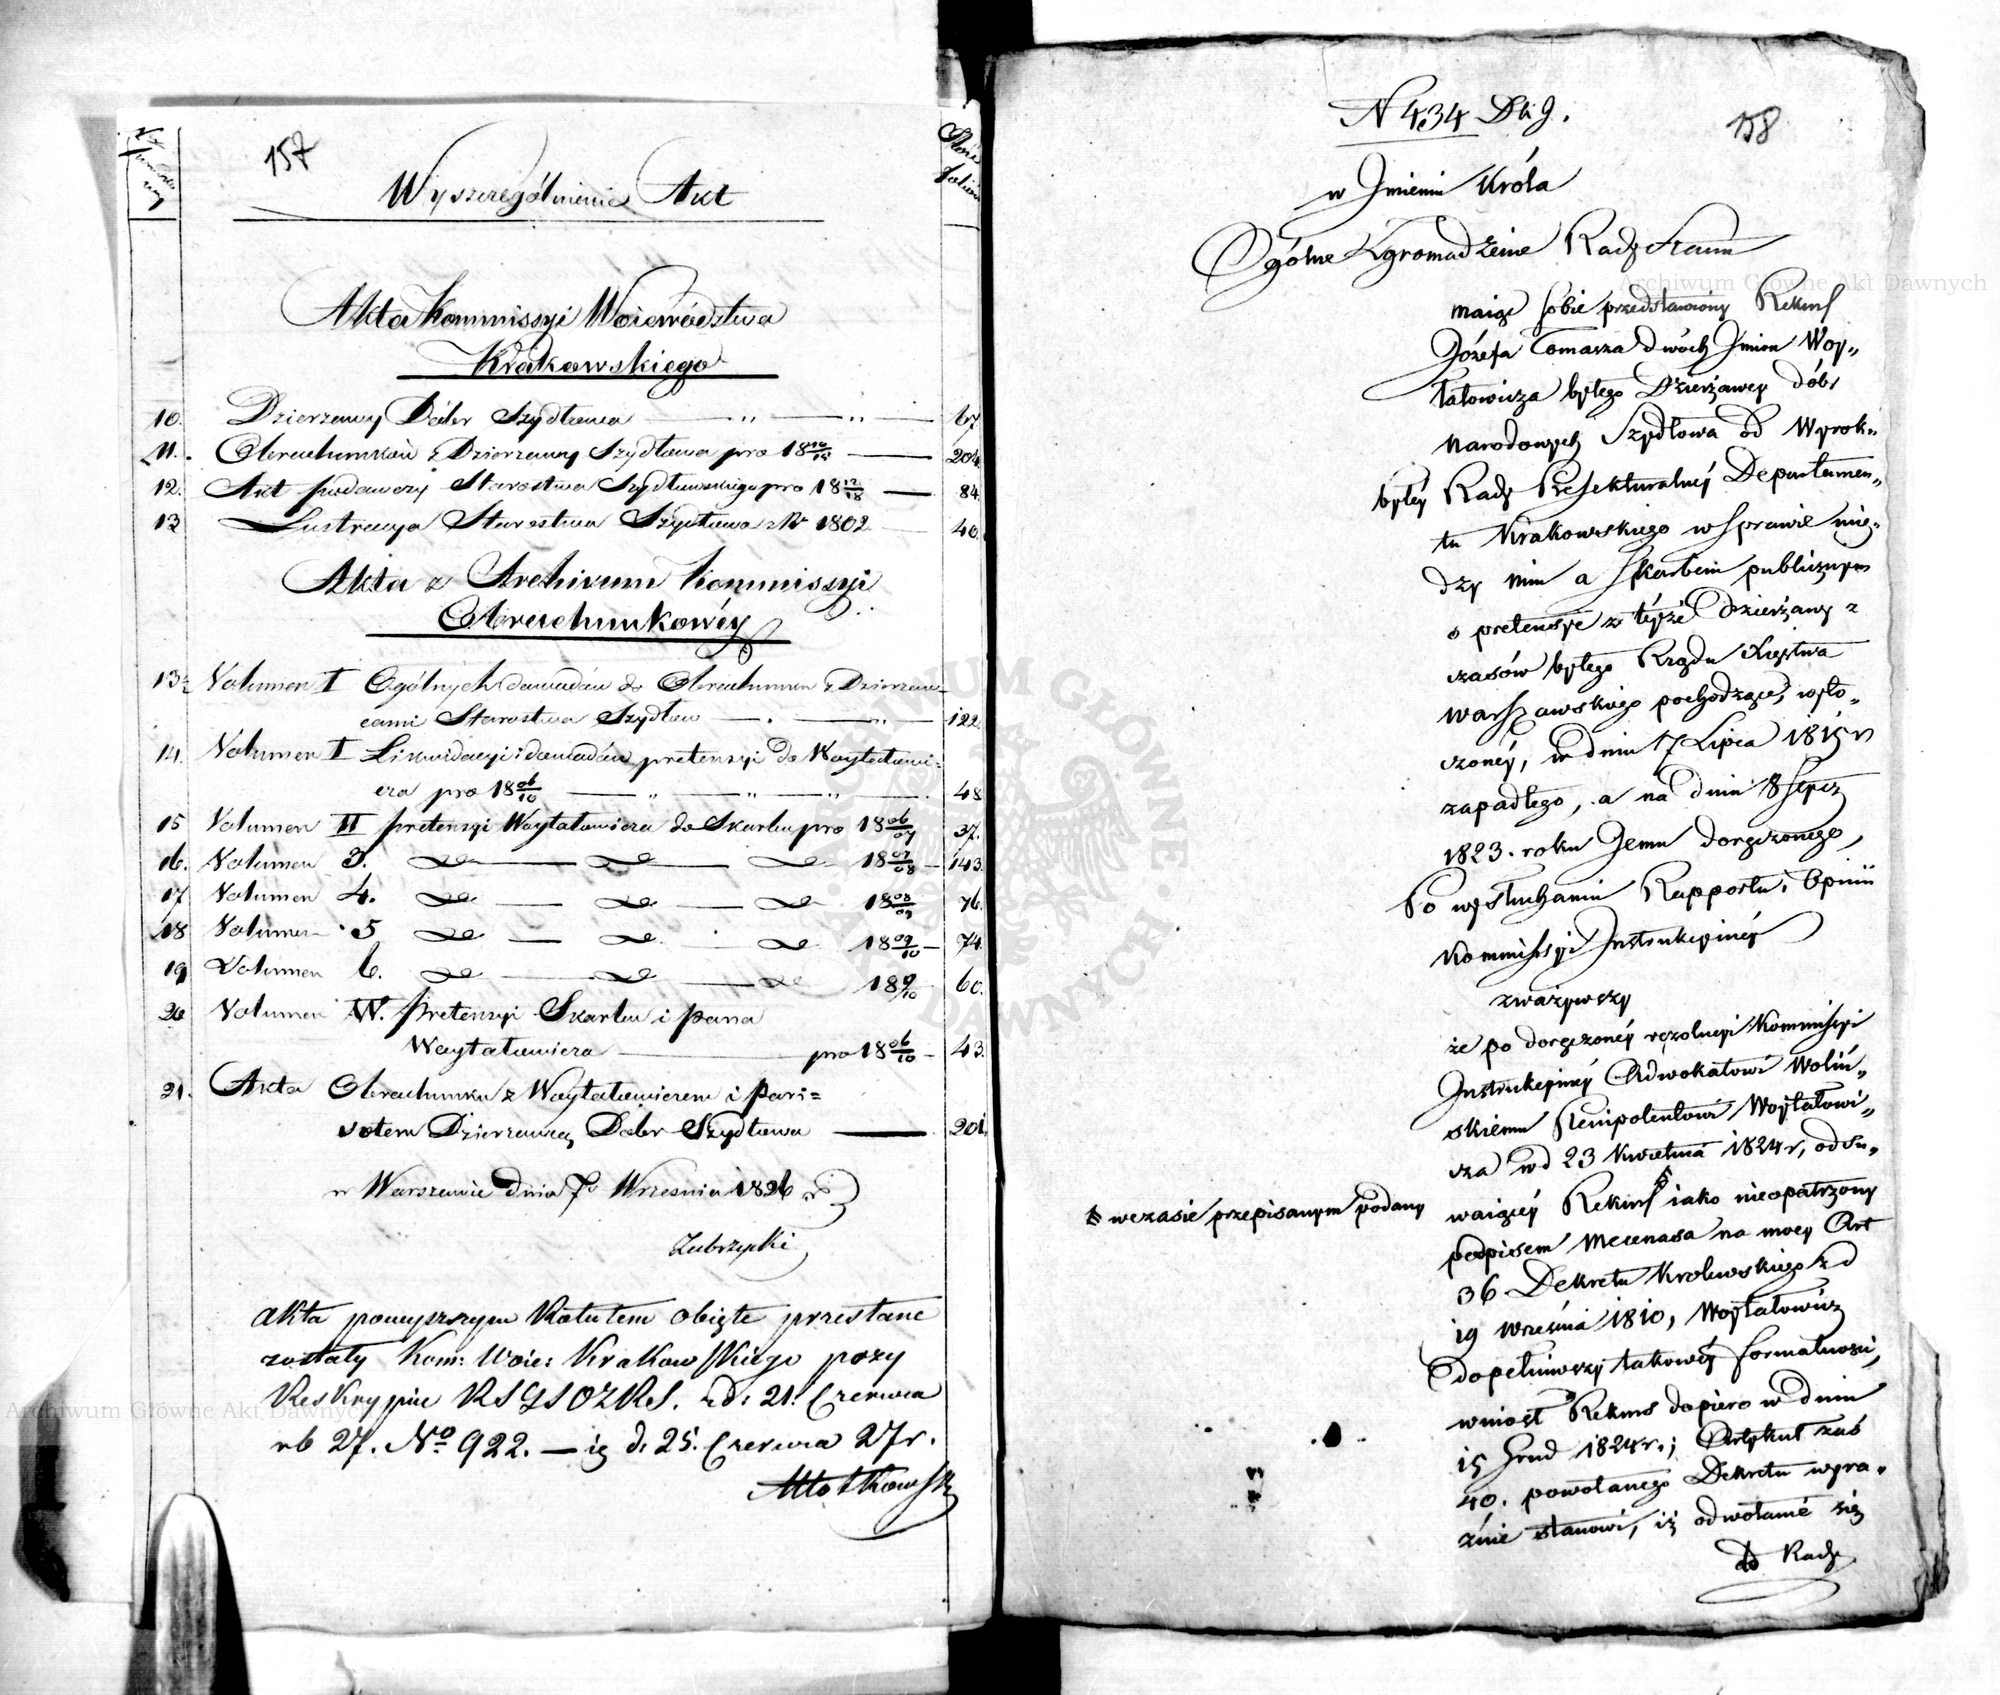 157
Wyszczegolnienie Akt
Akta Kommissyi Woiewództwa
Krakowskiego
10. Dzierzawy Dóbr Szydłowa — „ — „ — 67
11. Obrachunków z Dzierzawy Szydłowa pro 18 10/12 — 204.
12. Akt podawczy Starostwa Szydłowskiego pro 18 12/18 — 84.
13 Lustracya Starostwa Szydłowa z Ru 1802 — 40.
Akta z Archivum Kommissyi
Obrachunkowéy
13 Volumen I Ogólnych dowodów do Obrachunku z Dzierzaw-
cami Starostwa Szydłów — . — „ — 122.
14. Volumen I Likwidacyi i dowodów pretensyi do Woytatowi=
cza pro 18 06/10 — „ — „ — „ — 48
15 Volumen II pretensyi Woytatowicza do Skarbu pro 18 06/07 37.
16. Volumen 3. — — 18 07/08 — 143.
17 Volumen 4. — — 18 08/09 76.
18 Volumen 5 — — 18 09/10 — 74.
19 Volumen 6. — — 18 9/10 60.
20 Volumen IV. Pretensyi Skarbu i Pana
Woytatowicza — pro 18 06/10 — 43.
21. Akta Obrachunku z Woytatowiczem i Pari=
sotem Dzierzawcą Dóbr Szydłowa — 201.
w Warszawie dnia 7o Września 1826 r
Zubrzycki
Akta powyższym Rotulem obięte przesłane
zostały Kom: Woie: Krakowskiego przy
Reskrypcie z d: 21. Czerwca
rb 27. No 922. — d. 25. Czerwca 27 r.
N 434 Dli 9.
158
w Jmieniu Króla
Ogólne Zgromadzenie Rady Stanu
maiąc sobie przedstawiony Rekurs
Józefa Tomasza dwóch Jmion Woy„
tatowicza byłego Dzierżawcy dóbr
Narodowych Szydłowa od Wyrok„
byłéy Rady Prefekturalnéy Departamen„
tu Krakowskiego w sprawie mię„
dzy nim a Skarbem publicznym
o pretensye z téyże Dzierżawy z
czasów byłego Rządu Xięstwa
Warszawskiego pochodzące, wyto„
czonéy, w dniu 17 Lipca 1815 r
zapadłego, a na dniu 18 Sepcz
1823. roku Jemu doręczonego,
Po wysłuchaniu Rapportu i Opinii
Kommissyi Jnstrukcyinéy
zważywszy
że po doręczonéy rezolucyi Kommissyi
Jnstrukcyinéy Adwokatowi Woliń„
skiemu Plenipotentowi Woytatowi„
cza w d 23 Kwietnia 1824 r, odsu„
waiącéy Rekurs iako nieopatrzony
w czasie przepisanym podany
podpisem Mecenasa na mocy Art
36 Dekretu Krolewskiego z d
19 Września 1810, Woytatowicz
dopełniwszy takowéy formalności,
wniosł Rekurs dopiero w dniu
15 Grud 1824 r.; Artykuł zaś
40. powołanego Dekretu wyra„
źnie stanowi, iż odwołanie się
do Rady
Archiwum Główne Akt Dawnych
Archiwum Główne Akt Dawnych
ARCHIWUM GŁÓWNE AKT DAWNYCH